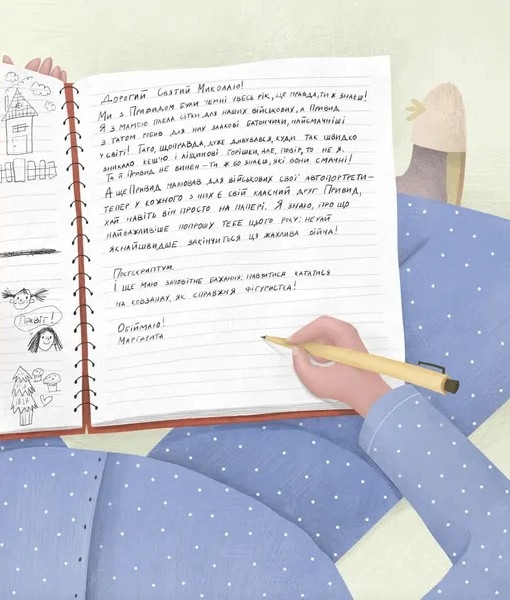 Дорогий Святий Миколаю!
Ми з Привидом були чемні увесь рік, це правда, ти ж знаєш!
Я з мамою плела сітки для наших військових, а Привид
з татом робив для них злакові батончики, найсмачніші
у світі! Тато, щоправда, дуже дивувався, куди так швидко
зникало кеш'ю і ліщинові горішки, але, повір, то не я.
Та й Привид не винен – ти ж бо знаєш, які вони смачні!
А ще Привид малював для військових свої автопортрети –
тепер у кожного з них є свій класний друг Привид,
хай навіть він просто на папері. Я знаю, про що
найважливіше попрошу тебе цього року: нехай
якнайшвидше закінчиться ця жахлива війна!
Постскриптум.
І ще маю заповітне бажання: навчитися кататися
на ковзанах, як справжня фігуристка!
Обіймаю!
Маргарита
Привіт!